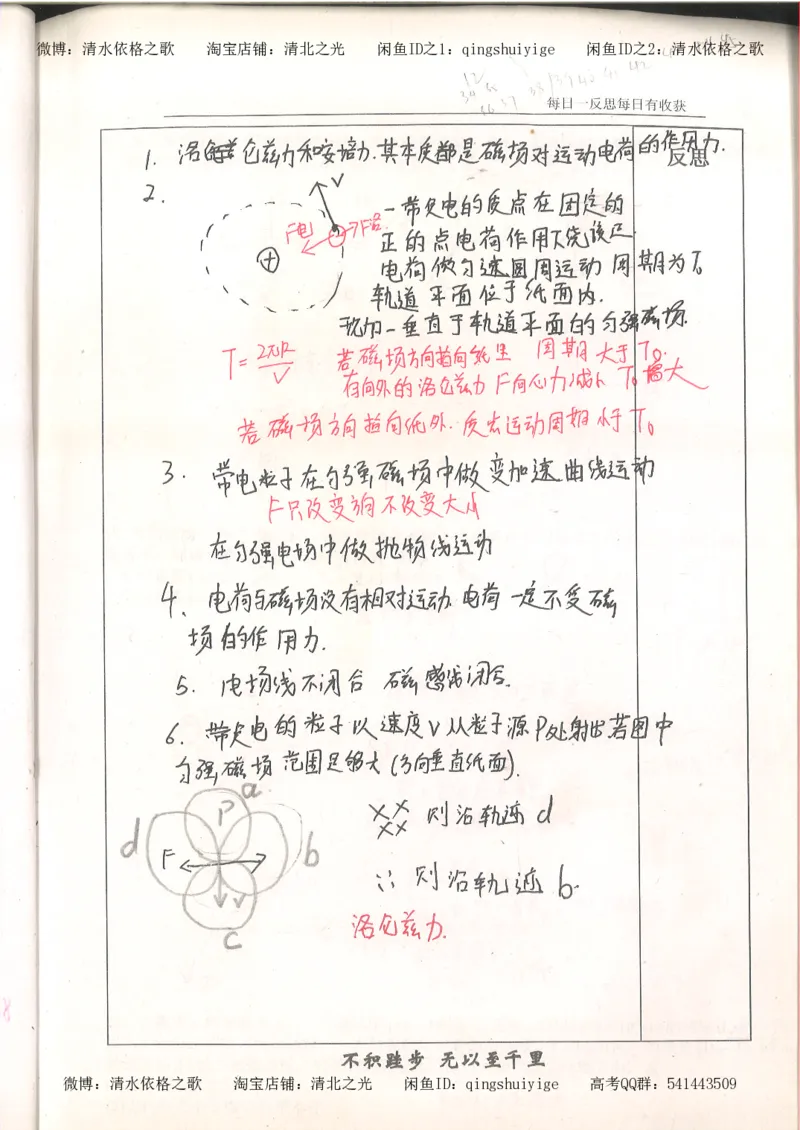 微博：清水依格之歌 淘宝店铺：清北之光 闲鱼ID之1：qingshuiyige 闲鱼ID之2：清水依格之歌
每日一反思每日有收获
反思
1. 洛仑兹力和安培力.其本质都是磁场对运动电荷的作用力.
2.
V
F电
F洛
+
一带负电的质点在固定的
正的点电荷作用下绕该正
电荷做匀速圆周运动 周期为T₀
轨道平面位于纸面内.
现加一垂直于轨道平面的匀强磁场.
T = 2πR/V
若磁场方向指向纸里 周期大于T₀.
有向外的洛仑兹力 F向心力减小 T₀增大
若磁场方向指向纸外.质点运动周期小于T₀
3. 带电粒子在匀强磁场中做变加速曲线运动
F只改变方向不改变大小
在匀强电场中做抛物线运动
4、电荷与磁场没有相对运动.电荷一定不受磁
场的作用力.
5. 电场线不闭合 磁感线闭合.
6、带负电的粒子以速度v从粒子源P处射出若图中
匀强磁场范围足够大(方向垂直纸面).
a
P
d
F
b
v
c
×× ×× 则沿轨迹d
∷ 则沿轨迹b.
洛仑兹力.
不积跬步 无以至千里
微博：清水依格之歌 淘宝店铺：清北之光 闲鱼ID：qingshuiyige 高考QQ群：541443509